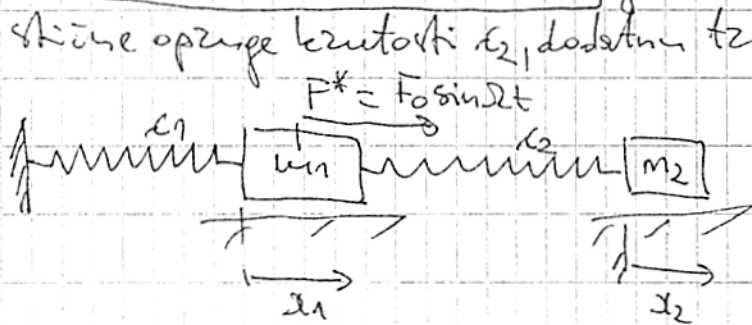 stične opruge krutosti c₂, dodatnu
F* = F₀sinΩt
c₁
m₁
c₂
m₂
x₁
x₂